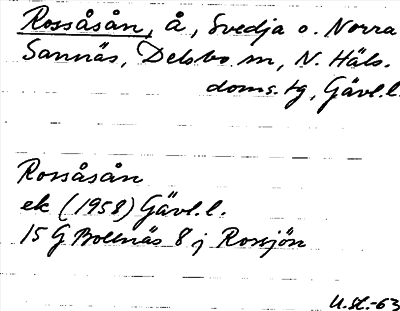 Rossåsån, å, Svedja o. Norra
Sannäs, Delsbo sn, N. Häls.
doms.tg, Gävl.l.
Rossåsån
ek (1958) Gävl.l.
15 G Bollnäs 8 j Rossjön
U.Sl.-63